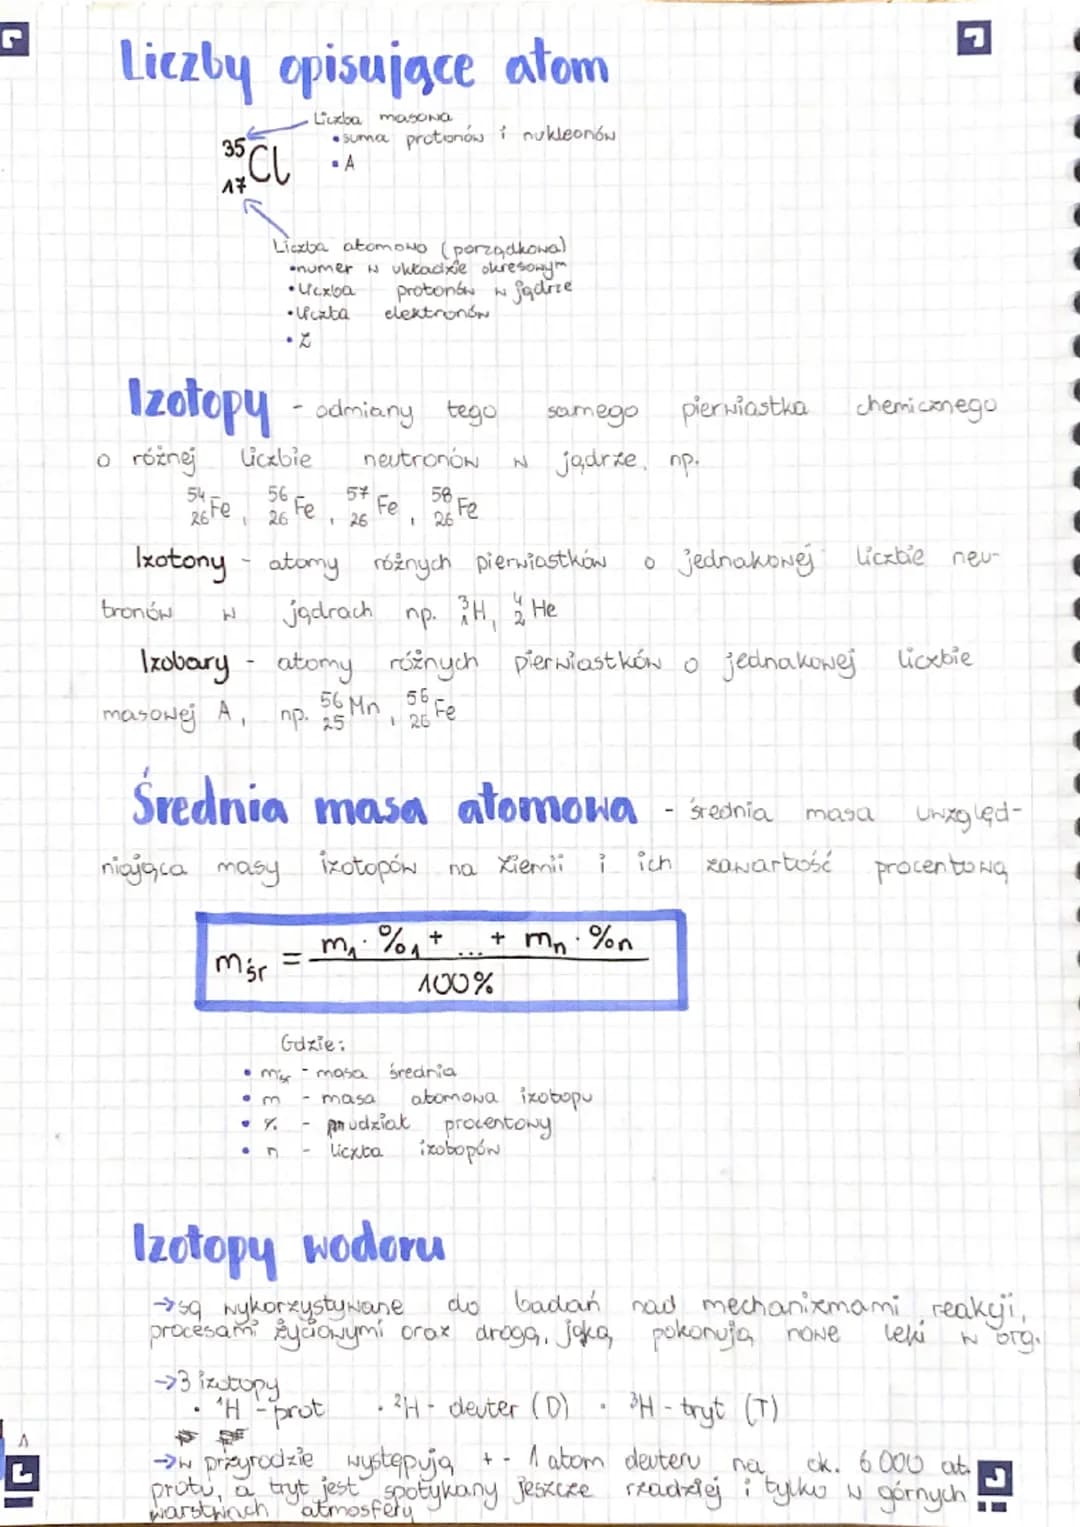 Liczby opisujące atom
Liczba masowa
• suma protonów i nukleonów
• A
35
17 Cl
Liczba atomowa (porządkowa)
• numer w układzie okresowym
• liczba protonów w jądrze
• liczba elektronów
• Z
Izotopy - odmiany tego samego pierwiastka chemicznego
o różnej liczbie neutronów w jądrze, np.
⁵⁴₂₆Fe, ⁵⁶₂₆Fe, ⁵⁷₂₆Fe, ⁵⁸₂₆Fe
Izotony - atomy różnych pierwiastków o jednakowej liczbie neu-
tronów w jądrach np. ³₁H, ⁴₂He
Izobary - atomy różnych pierwiastków o jednakowej liczbie
masowej A, np. ⁵⁶₂₅Mn, ⁵⁶₂₆Fe
Średnia masa atomowa - średnia masa uwzględ-
niająca masy izotopów na Ziemii i ich zawartość procentową
mśr = m₁ · %₁ + ... + mn · %n
100%
Gdzie:
• mśr - masa średnia
• m - masa atomowa izotopu
• % - udział procentowy
• n - liczba izotopów
Izotopy wodoru
→ są wykorzystywane do badań nad mechanizmami reakcji,
procesami życiowymi oraz drogą, jaką pokonują nowe leki w org.
→ 3 izotopy
• ¹H - prot • ²H - deuter (D) • ³H - tryt (T)
→ w przyrodzie występują + - 1 atom deuteru na ok. 6000 at.
protu, a tryt jest spotykany jeszcze rzadziej i tylko w górnych
warstwach atmosfery
1